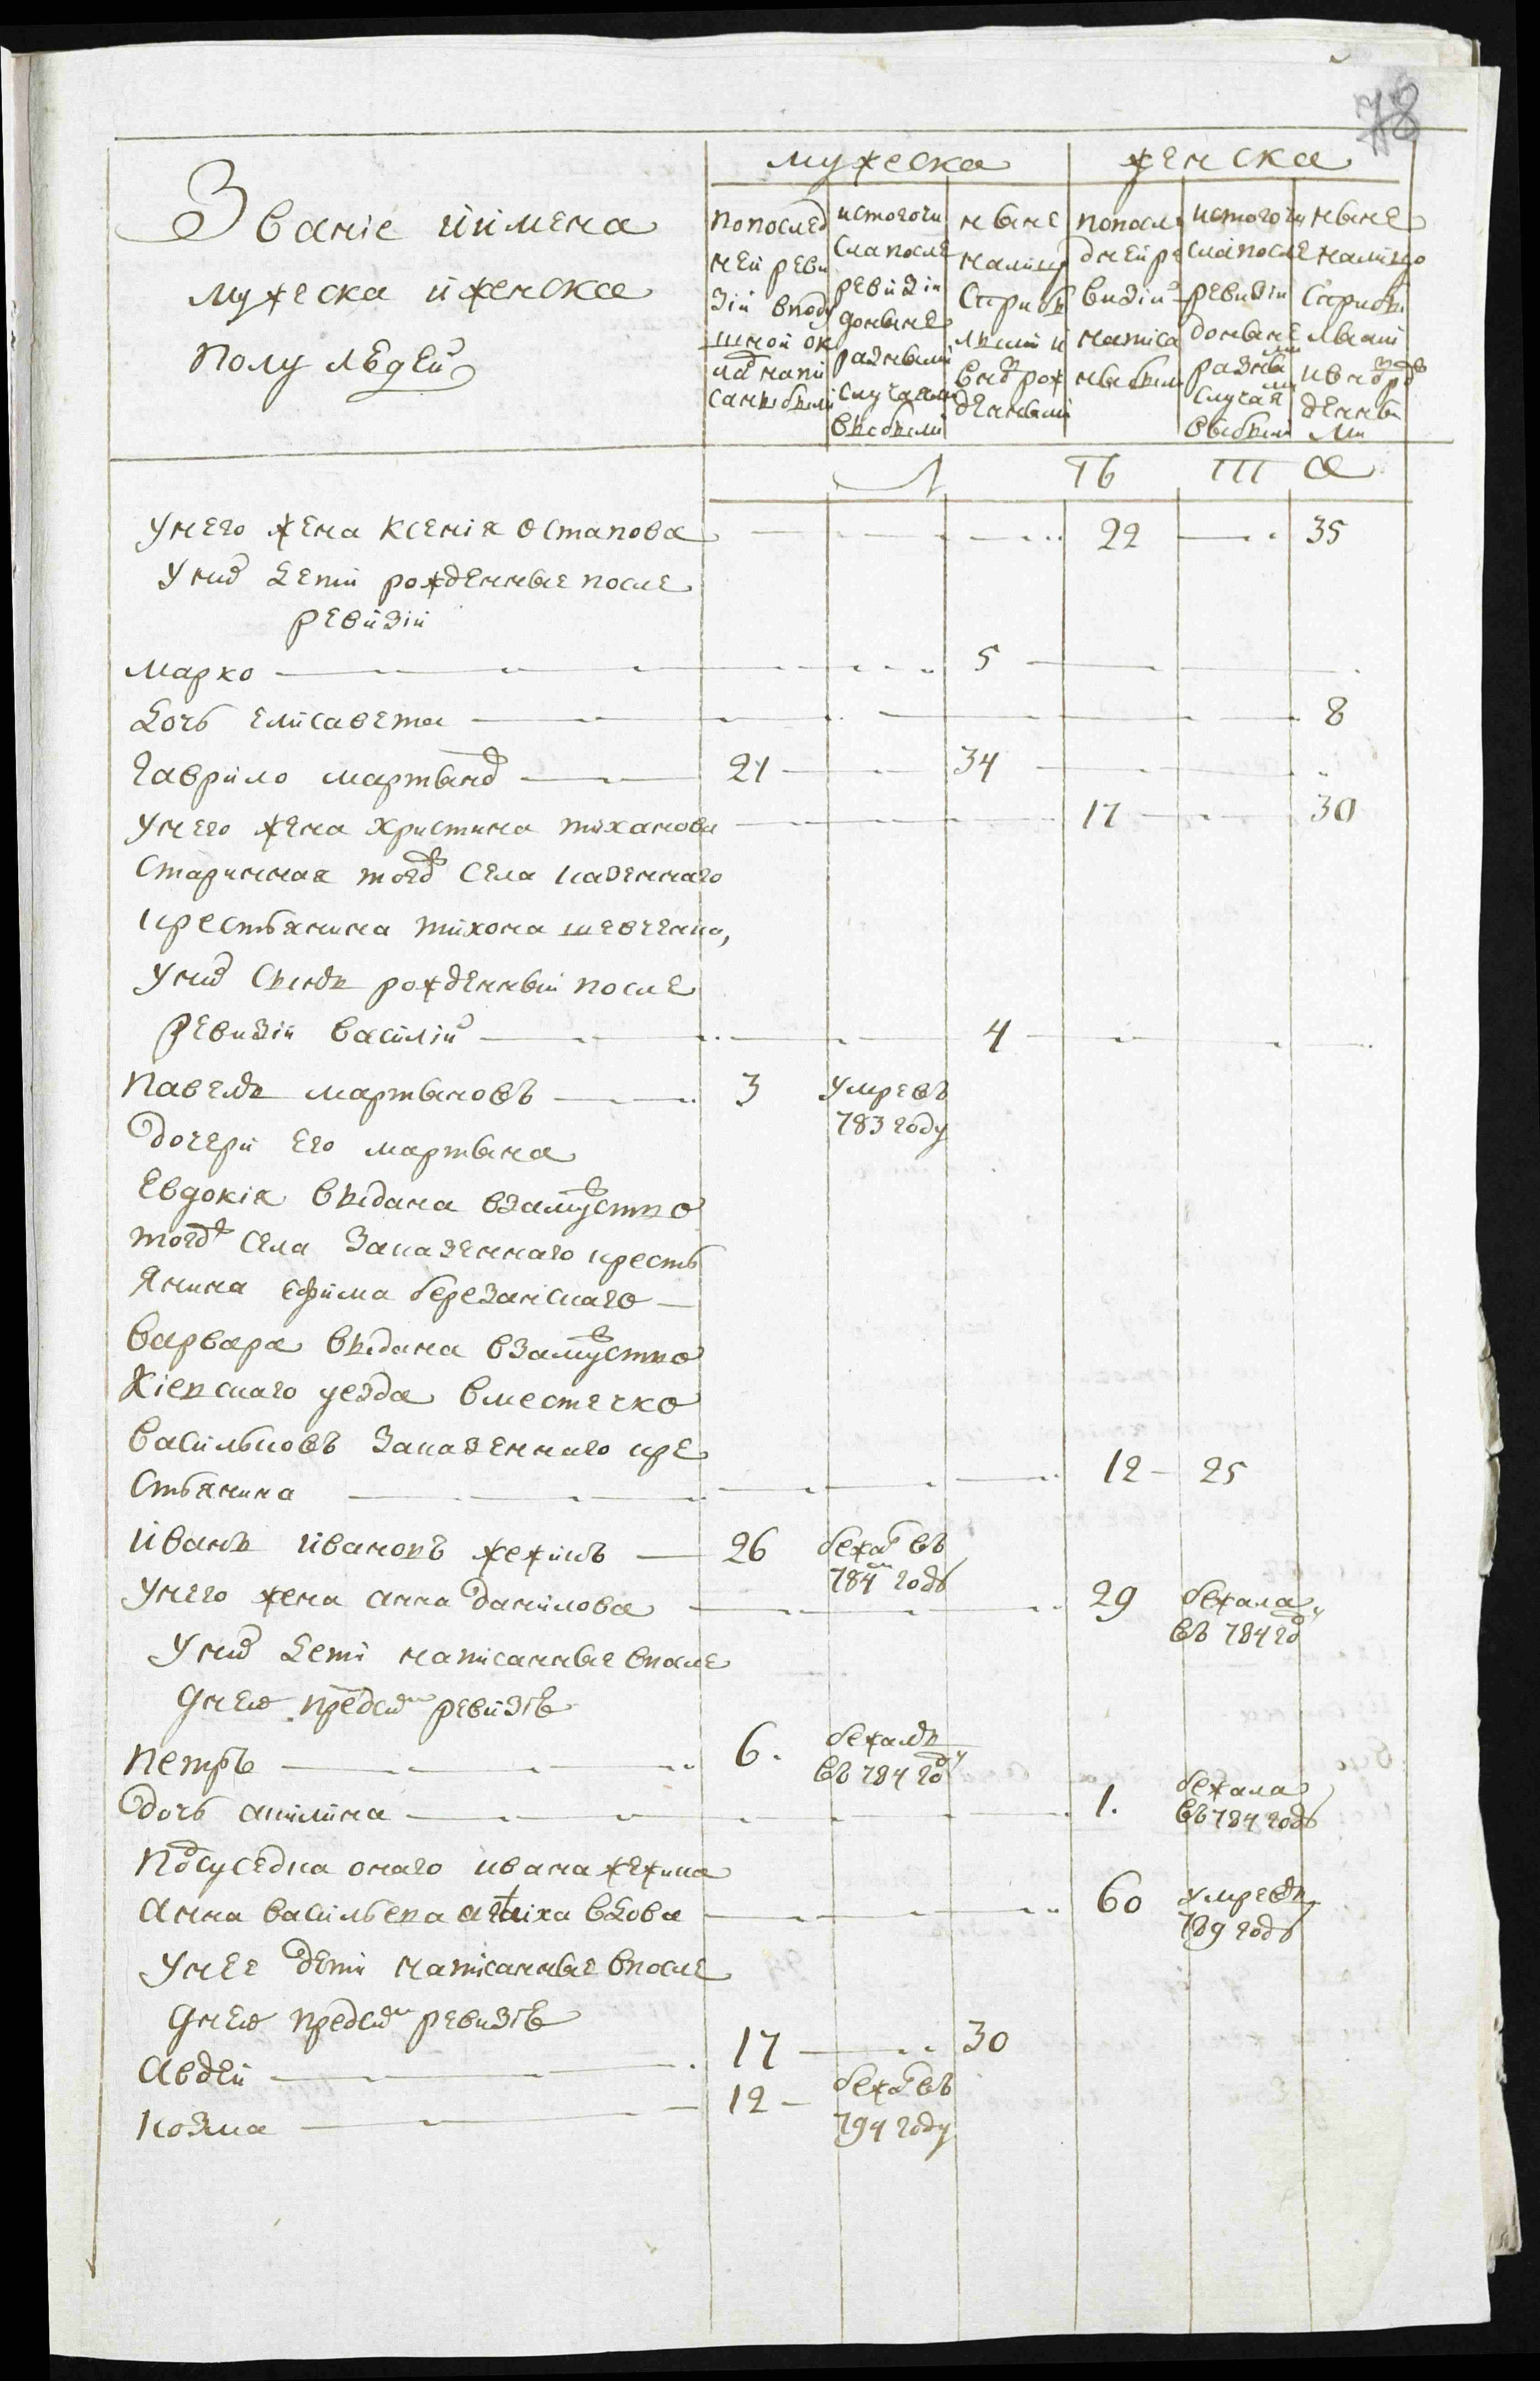 78
Званіе и имена
мужеска и женска
полу людей
мужеска
женска
по послед
ней реви
зіи в поду
шной ок
ладъ напи
саны были
ис того чи
сла после
ревизіи
до ныне
разными
случаями
выбыли
ныне
на лицо
с прибы
лыми и
вновь рож
денными
по после
дней ре
визіи
написа
ны были
ис того чи
сла после
ревизіи
до ныне
разны
ми
случая
ми
выбыли
ныне
на лицо
с прибы
лыми
и вновь рож
денны
ми
Л ѣ т а
у него жена Ксенія Остапова 22 35
у них дети рожденные после
ревизіи
Марко 5
дочь Елисавета 8
Гаврило Мартынов 21 34
у него жена Христина Тиханова 17 30
старинная того ж села казенного
крестьянина Тихона Шевченка,
у них сынъ рожденный после
ревизіи Василій 4
Павелъ Мартыновъ 3 умре въ
783 году
дочери его Мартына
Евдокія выдана в замужство
того ж села за казенного кресть
янина Ефима Березанскаго
Варвара выдана в замужство
Кіевскаго уезда в местечко
Васильковъ за казенного кре
стьянина 12 25
Иванъ Ивановъ Жежинъ 26 бежал въ
784м годе
у него жена Анна Данилова 29 бежала
въ 784 году
у них дети написанные в после
дней пред сим ревизіе
Петръ 6. бежалъ
въ 784 году
дочь Акилина 1. бежала
въ 784 годе
подсуседка онаго Ивана Жежина
Анна Васильева вдова 60 умре въ
789 годе
у нее дети написанные в после
дней пред сим ревизіе
Авдей 17 30
Козма 12 бежал въ
794 году